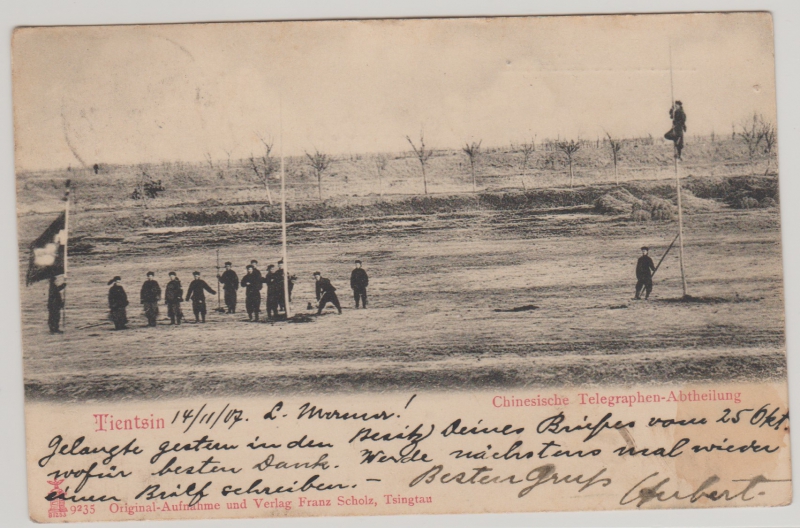 Chinesische Telegraphen-Abtheilung
Tientsin 14/11/07. L. Werner!
Gelangte gestern in den Besitz Deines Briefes vom 25 Okt.
wofür besten Dank. Werde nächstens mal wieder
einen Brief schreiben. - Besten Gruß Hubert.
9235 Original-Aufnahme und Verlag Franz Scholz, Tsingtau